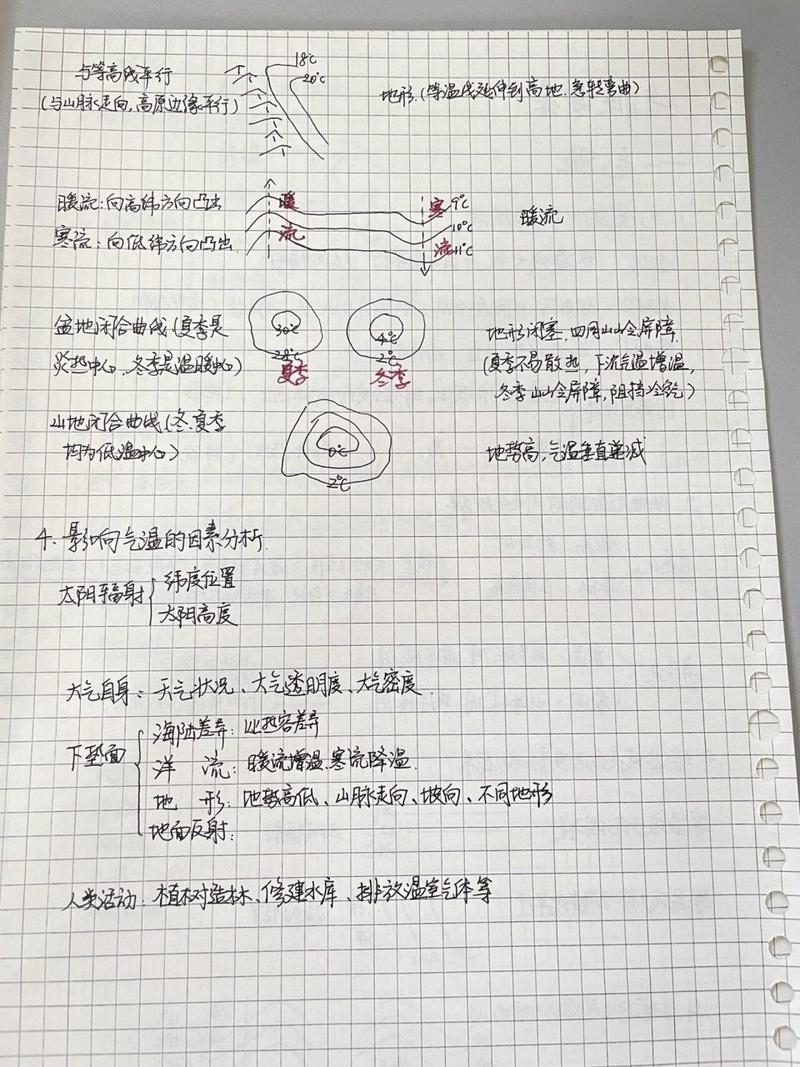 18℃
与等高线平行
20℃
地形.(等温线延伸到高地.急转弯曲)
(与山脉走向,高原边缘平行)
暖流:向高纬方向凸出
暖
寒
9℃
暖流
10℃
寒流:向低纬方向凸出
流
流
11℃
盆地闭合曲线(夏季是
30℃
4℃
地形闭塞,四周山岭屏障.
28℃
2℃
炎热中心,冬季是温暖中心)
夏季
冬季
(夏季不易散热,下沉气温增温,
冬季山岭屏障,阻挡冷空气)
山地闭合曲线(冬.夏季
均为低温中心)
0℃
地势高,气温垂直递减
2℃
4、影响气温的因素分析.
太阳辐射
纬度位置
太阳高度
大气自身:天气状况、大气透明度、大气密度.
下垫面
海陆差异:比热容差异
洋 流:暖流增温.寒流降温.
地 形:地势高低、山脉走向、坡向、不同地形
地面反射:
人类活动:植树造林、修建水库、排放温室气体等